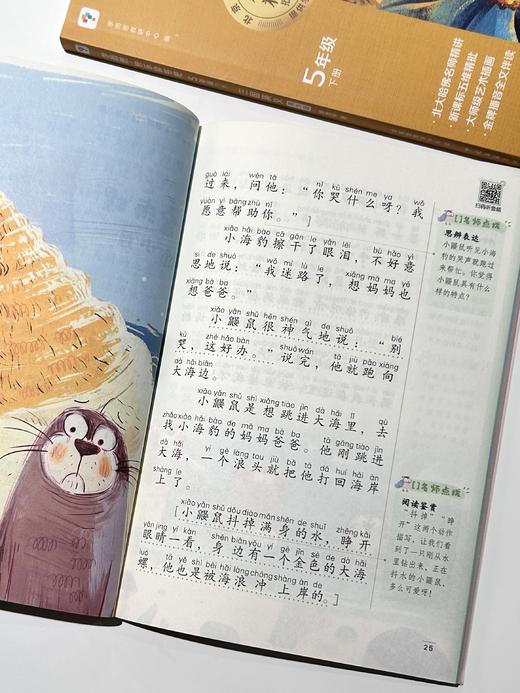 学而思教研中心 编
5年级
下册
·北大哈佛名师精讲
·新课标五维精批
·大师级艺术插画
·金牌播音全文伴读
扫码听音频
guò lái wèn tā nǐ kū shén me ya wǒ
过来，问他：“你哭什么呀？我
yuàn yì bāng zhù nǐ
愿意帮助你。”]
xiǎo hǎi bào cā gān le yǎn lèi bù hǎo yì
小海豹擦干了眼泪，不好意
si de shuō wǒ mí lù le xiǎng mā ma yě
思地说：“我迷路了，想妈妈也
xiǎng bà ba
想爸爸。”
xiǎo yǎn shǔ hěn shén qì de shuō bié
小鼹鼠很神气地说：“别
kū zhè hǎo bàn shuō wán tā jiù pǎo xiàng
哭，这好办。”说完，他就跑向
dà hǎi biān
大海边。
xiǎo yǎn shǔ shì xiǎng tiào jìn dà hǎi lǐ qù
小鼹鼠是想跳进大海里，去
zhǎo xiǎo hǎi bào de mā ma bà ba tā gāng tiào jìn
找小海豹的妈妈爸爸。他刚跳进
dà hǎi yí gè làng tou jiù bǎ tā dǎ huí hǎi àn
大海，一个浪头就把他打回海岸
shàng le
上了。
xiǎo yǎn shǔ dǒu diào mǎn shēn de shuǐ zhēng kāi
[小鼹鼠抖掉满身的水，睁开
yǎn jing yí kàn shēn biān yǒu yí gè jīn sè de dà hǎi
眼睛一看，身边有一个金色的大海
luó tā yě shì bèi hǎi làng chōng shàng àn de
螺，他也是被海浪冲上岸的。]
名师点拨
思辨表达
小鼹鼠听见小海
豹的哭声就跑过
来帮忙。你觉得
小鼹鼠具有什么
样的特点？
名师点拨
阅读鉴赏
“抖掉”“睁
开”这两个动作
描写，让我们看
到了一只刚从水
里钻出来，正在
抖水的小鼹鼠，
多么可爱呀！
25